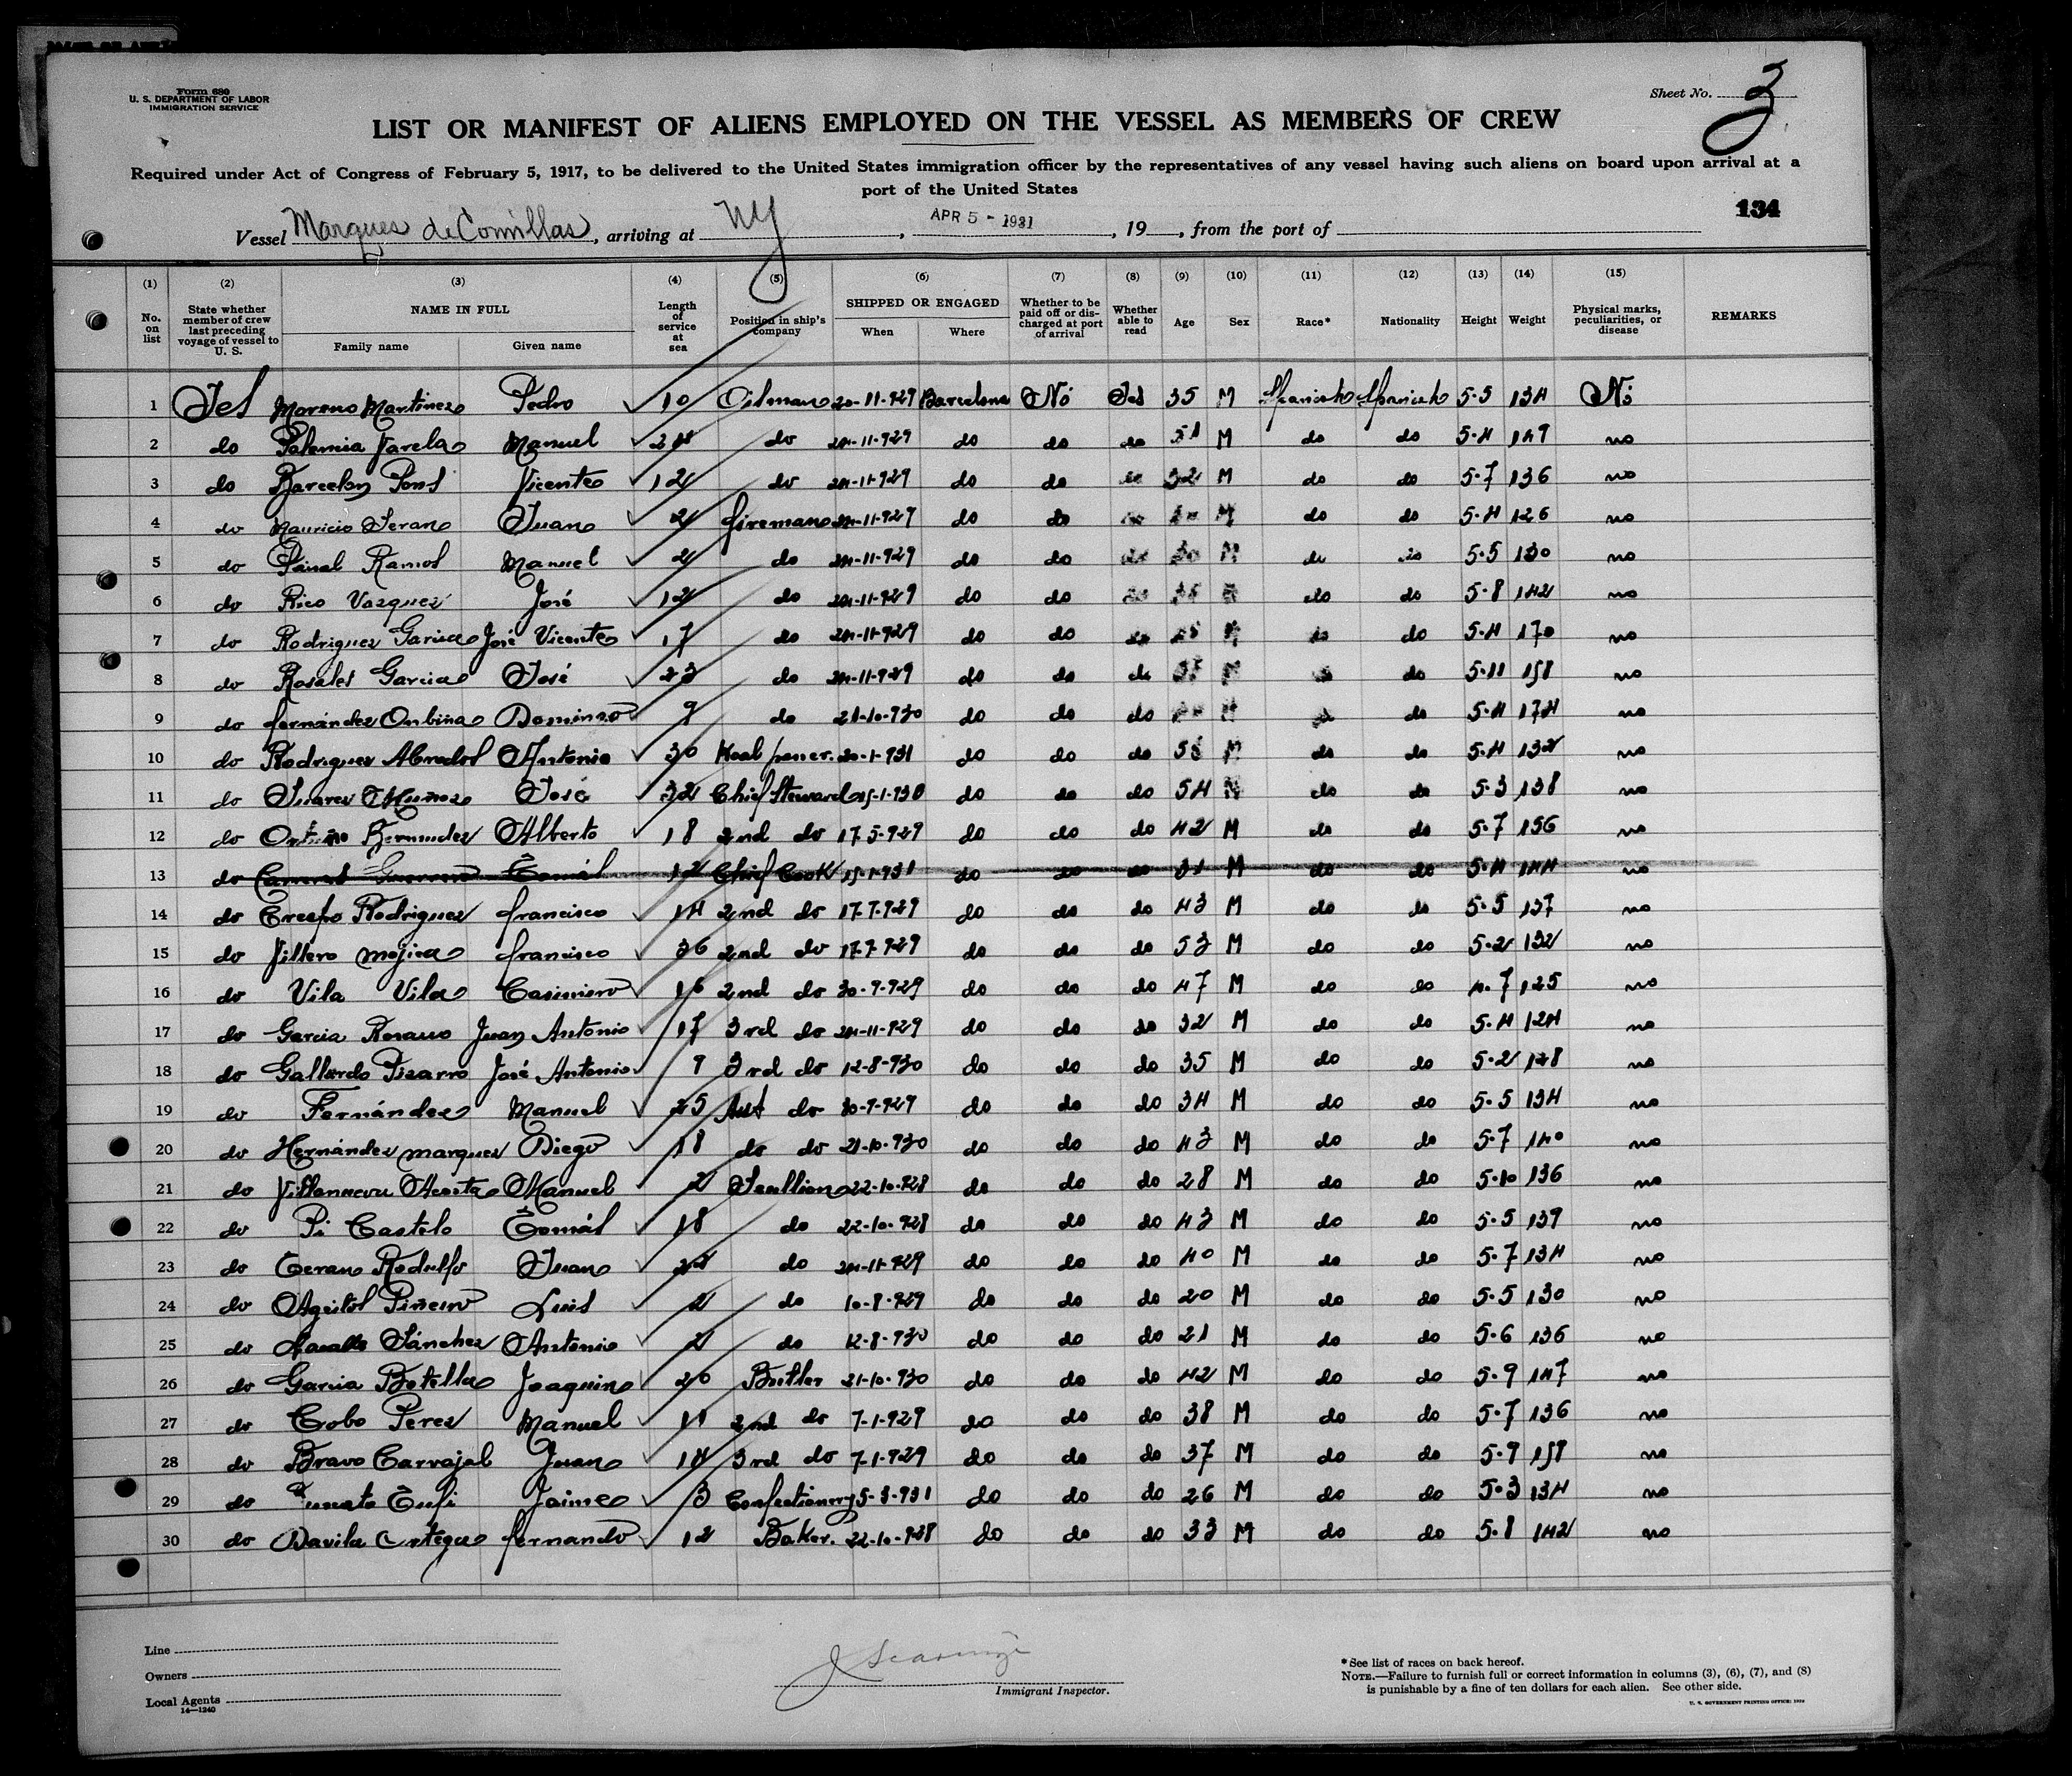 Form 680
U. S. DEPARTMENT OF LABOR
IMMIGRATION SERVICE
Sheet No. 3
LIST OR MANIFEST OF ALIENS EMPLOYED ON THE VESSEL AS MEMBERS OF CREW
Required under Act of Congress of February 5, 1917, to be delivered to the United States immigration officer by the representatives of any vessel having such aliens on board upon arrival at a
port of the United States
134
Vessel Marques de Comillas, arriving at NY, APR 5 - 1931, 19__, from the port of
(1) (2) (3) (4) (5) (6) (7) (8) (9) (10) (11) (12) (13) (14) (15)
No. on list State whether member of crew last preceding voyage of vessel to U. S. NAME IN FULL Family name Given name Length of service at sea Position in ship's company SHIPPED OR ENGAGED When Where Whether to be paid off or discharged at port of arrival Whether able to read Age Sex Race* Nationality Height Weight Physical marks, peculiarities, or disease REMARKS
1 Yes Moreno Martinez Pedro 10 Oilman 20-11-929 Barcelona No Yes 35 M Spanish Spanish 5-5 134 No
2 do Varela Manuel 24 do 24-11-929 do do do 51 M do do 5-4 149 no
3 do Barcelon Pons Vicente 12 do 24-11-929 do do do 32 M do do 5-7 136 no
4 do Mauricio Serano Juan 2 fireman 24-11-929 do do do M do do 5-4 126 no
5 do Ramos Manuel 2 do 24-11-929 do do do 30 M do do 5-5 130 no
6 do Rico Vazquez José 12 do 24-11-929 do do do M do do 5-8 142 no
7 do Rodriguez Garcia José Vicente 17 do 24-11-929 do do do M do do 5-4 170 no
8 do Rosales Garcia José 23 do 24-11-929 do do do M do do 5-11 158 no
9 do fernández Domingo 9 do 21-10-930 do do do M do do 5-4 174 no
10 do Rodriguez Antonio 30 20-1-931 do do do M do do 5-4 132 no
11 do Suarez Muñoz José 32 Chief Steward do do do 54 M do do 5-3 138 no
12 do Bermudez Alberto 18 2nd do 17-5-929 do do do 42 M do do 5-7 156 no
13 do Carreras Guerrero Tomás 12 Chief Cook 15-1-931 do do do 31 M do do 5-4 144 no
14 do Crespo Rodriguez francisco 14 2nd do 17-7-929 do do do 43 M do do 5-5 137 no
15 do Villero Mojica francisco 36 2nd do 17-7-929 do do do 53 M do do 5-2 132 no
16 do Vila Vila Casimiro 16 2nd do 30-9-929 do do do 47 M do do 4-7 125 no
17 do Garcia Juan Antonio 17 3rd do 24-11-929 do do do 32 M do do 5-4 124 no
18 do Gallardo Pizarro José Antonio 9 3rd do 12-8-930 do do do 35 M do do 5-2 128 no
19 do Fernández Manuel 25 Ast do 30-9-929 do do do 34 M do do 5-5 134 no
20 do Hernández marquez Diego 18 do do 21-10-930 do do do 43 M do do 5-7 140 no
21 do Villanueva Acosta Manuel 2 Scullion 22-10-928 do do do 28 M do do 5-10 136 no
22 do Pi Castelo Tomás 18 do 22-10-928 do do do 43 M do do 5-5 139 no
23 do Terano Rodulfo Juan 22 do 24-11-929 do do do 40 M do do 5-7 134 no
24 do Piñeiro Luis 2 do 10-8-929 do do do 20 M do do 5-5 130 no
25 do Sánchez Antonio 2 do 12-8-930 do do do 21 M do do 5-6 136 no
26 do Garcia Botella Joaquin 20 Butler 21-10-930 do do do 42 M do do 5-9 147 no
27 do Cobo Perez Manuel 11 2nd do 7-1-929 do do do 38 M do do 5-7 136 no
28 do Bravo Carvajal Juan 14 3rd do 7-1-929 do do do 37 M do do 5-9 159 no
29 do Jaime 3 Confectionery 5-3-931 do do do 26 M do do 5-3 134 no
30 do Davila Ortega fernando 12 Baker. 22-10-928 do do do 33 M do do 5-8 142 no
Line
Owners
Local Agents
14—1240
Immigrant Inspector.
* See list of races on back hereof.
NOTE.—Failure to furnish full or correct information in columns (3), (6), (7), and (8)
is punishable by a fine of ten dollars for each alien. See other side.